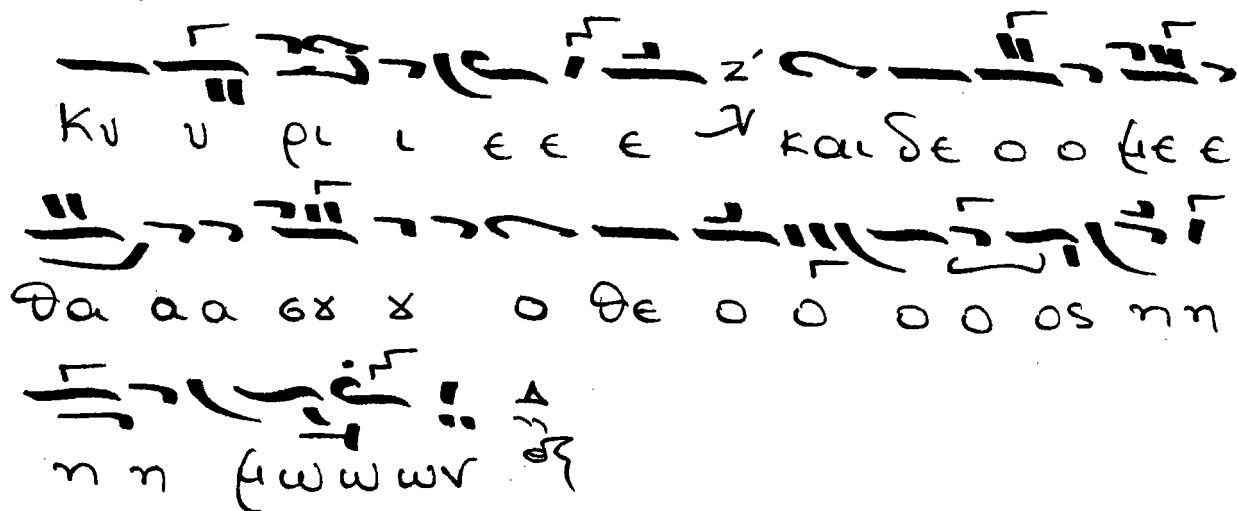 Κυ υ ρι ι ε ε ε και δε ο ο με ε
θα α α σȣ ȣ ο θε ο ο ο ο ος η η
η η μω ω ων